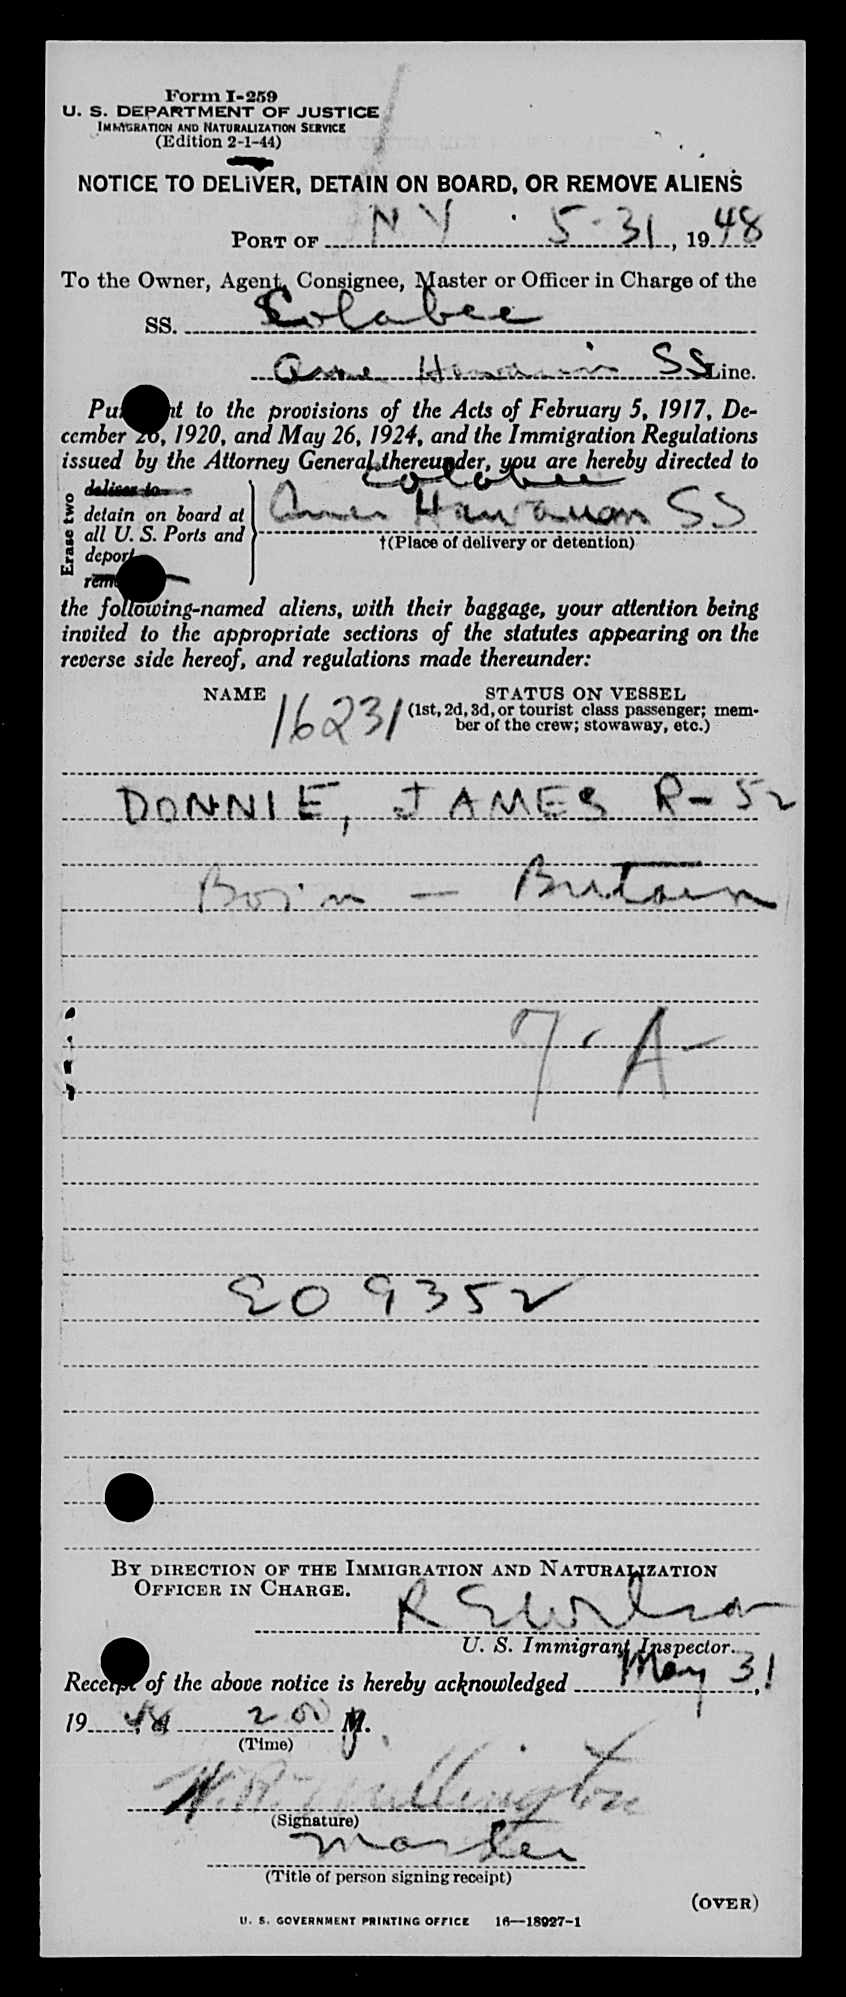 Form I-259
U. S. DEPARTMENT OF JUSTICE
IMMIGRATION AND NATURALIZATION SERVICE
(Edition 2-1-44)
NOTICE TO DELIVER, DETAIN ON BOARD, OR REMOVE ALIENS
PORT OF N Y 5-31, 1948
To the Owner, Agent, Consignee, Master or Officer in Charge of the
SS. Colabee
Amer Hawaiian SS Line.
Pursuant to the provisions of the Acts of February 5, 1917, De-
cember 26, 1920, and May 26, 1924, and the Immigration Regulations
issued by the Attorney General thereunder, you are hereby directed to
Colabee
Erase two
deliver to
detain on board at
all U. S. Ports and
deport
remove
Amer Hawaiian SS
†(Place of delivery or detention)
the following-named aliens, with their baggage, your attention being
invited to the appropriate sections of the statutes appearing on the
reverse side hereof, and regulations made thereunder:
NAME 16231 STATUS ON VESSEL
(1st, 2d, 3d, or tourist class passenger; mem-
ber of the crew; stowaway, etc.)
DONNIE, JAMES R-52
Born - Britain
7 A
E09352
BY DIRECTION OF THE IMMIGRATION AND NATURALIZATION
OFFICER IN CHARGE.
R E Wilson
U. S. Immigrant Inspector.
Receipt of the above notice is hereby acknowledged May 31,
1948 200 P M.
(Time)
W. R. Millington
(Signature)
Master
(Title of person signing receipt)
(OVER)
U. S. GOVERNMENT PRINTING OFFICE 16—18927-1